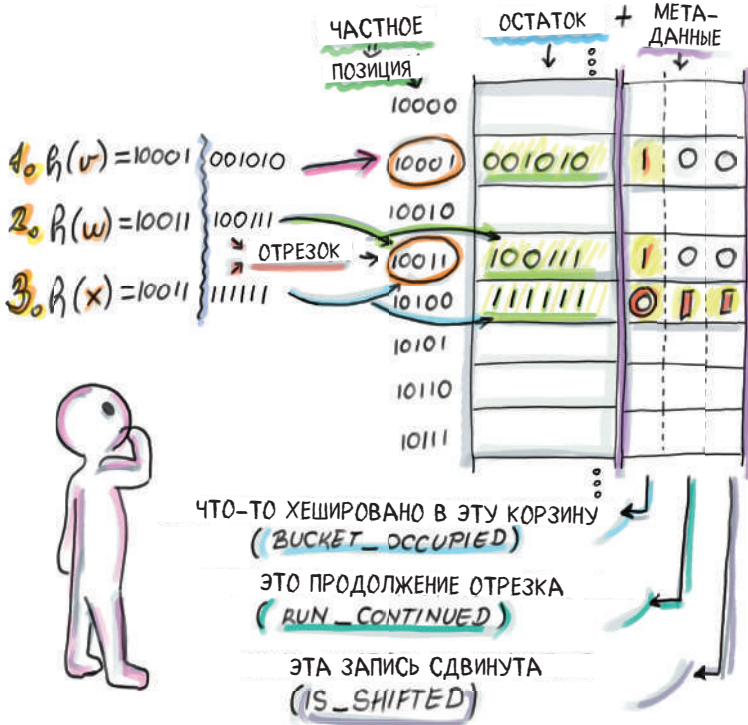 ЧАСТНОЕ
ПОЗИЦИЯ
ОСТАТОК + МЕТА-
ДАННЫЕ
10000
1. h(v) = 10001 001010 10001 001010 1 0 0
10010
2. h(w) = 10011 100111
ОТРЕЗОК 10011 100111 1 0 0
3. h(x) = 10011 111111 10100 111111 0 1 1
10101
10110
10111
ЧТО-ТО ХЕШИРОВАНО В ЭТУ КОРЗИНУ
(BUCKET_OCCUPIED)
ЭТО ПРОДОЛЖЕНИЕ ОТРЕЗКА
(RUN_CONTINUED)
ЭТА ЗАПИСЬ СДВИНУТА
(IS_SHIFTED)